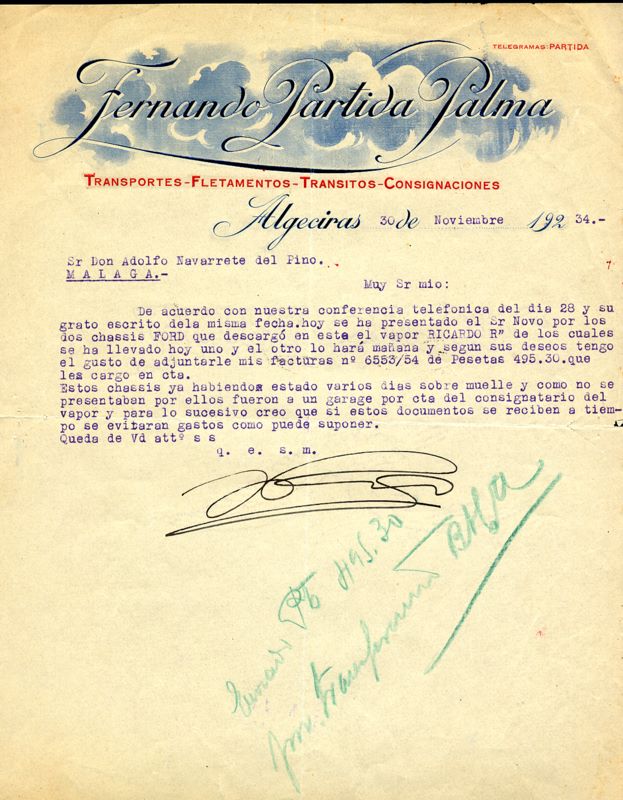 TELEGRAMAS: PARTIDA
Fernando Partida Palma
TRANSPORTES-FLETAMENTOS-TRANSITOS-CONSIGNACIONES
Algeciras 30 de Noviembre 192 34.-
Sr Don Adolfo Navarrete del Pino.
MALAGA.-
Muy Sr mio:
De acuerdo con nuestra conferencia telefonica del dia 28 y su
grato escrito dela misma fecha.hoy se ha presentado el Sr Novo por los
dos chassis FORD que descargó en esta el vapor RICARDO R" de los cuales
se ha llevado hoy uno y el otro lo hará mañana y segun sus deseos tengo
el gusto de adjuntarle mis facturas nº 6553/54 de Pesetas 495.30.que
les cargo en cta.
Estos chassis ya habiendos estado varios dias sobre muelle y como no se
presentaban por ellos fueron a un garage por cta del consignatario del
vapor y para lo sucesivo creo que si estos documentos se reciben a tiem-
po se evitaran gastos como puede suponer.
Queda de Vd attº s s
q. e. s. m.
495.30
por transferencia BHA